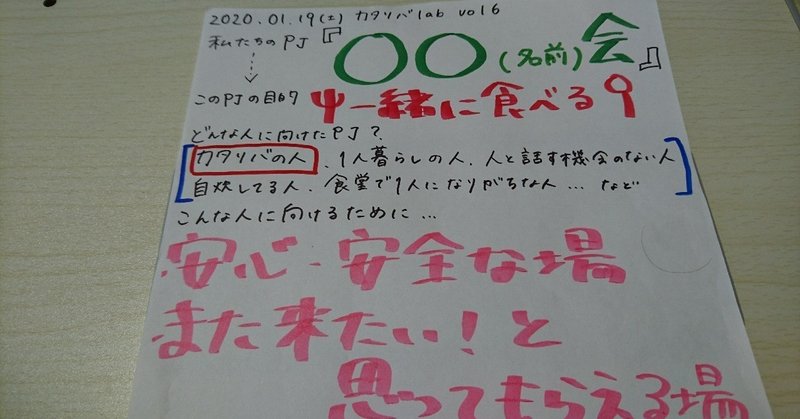 2020.01.19(土) カタリバlab vol6
私たちのPJ『〇〇(名前)会』
このPJの目的 一緒に食べる
どんな人に向けたPJ?
カタリバの人、1人暮らしの人、人と話す機会のない人
自炊してる人、食堂で1人になりがちな人…など
こんな人に向けるために…
安心・安全な場
また来たい!と
思ってもらえる場